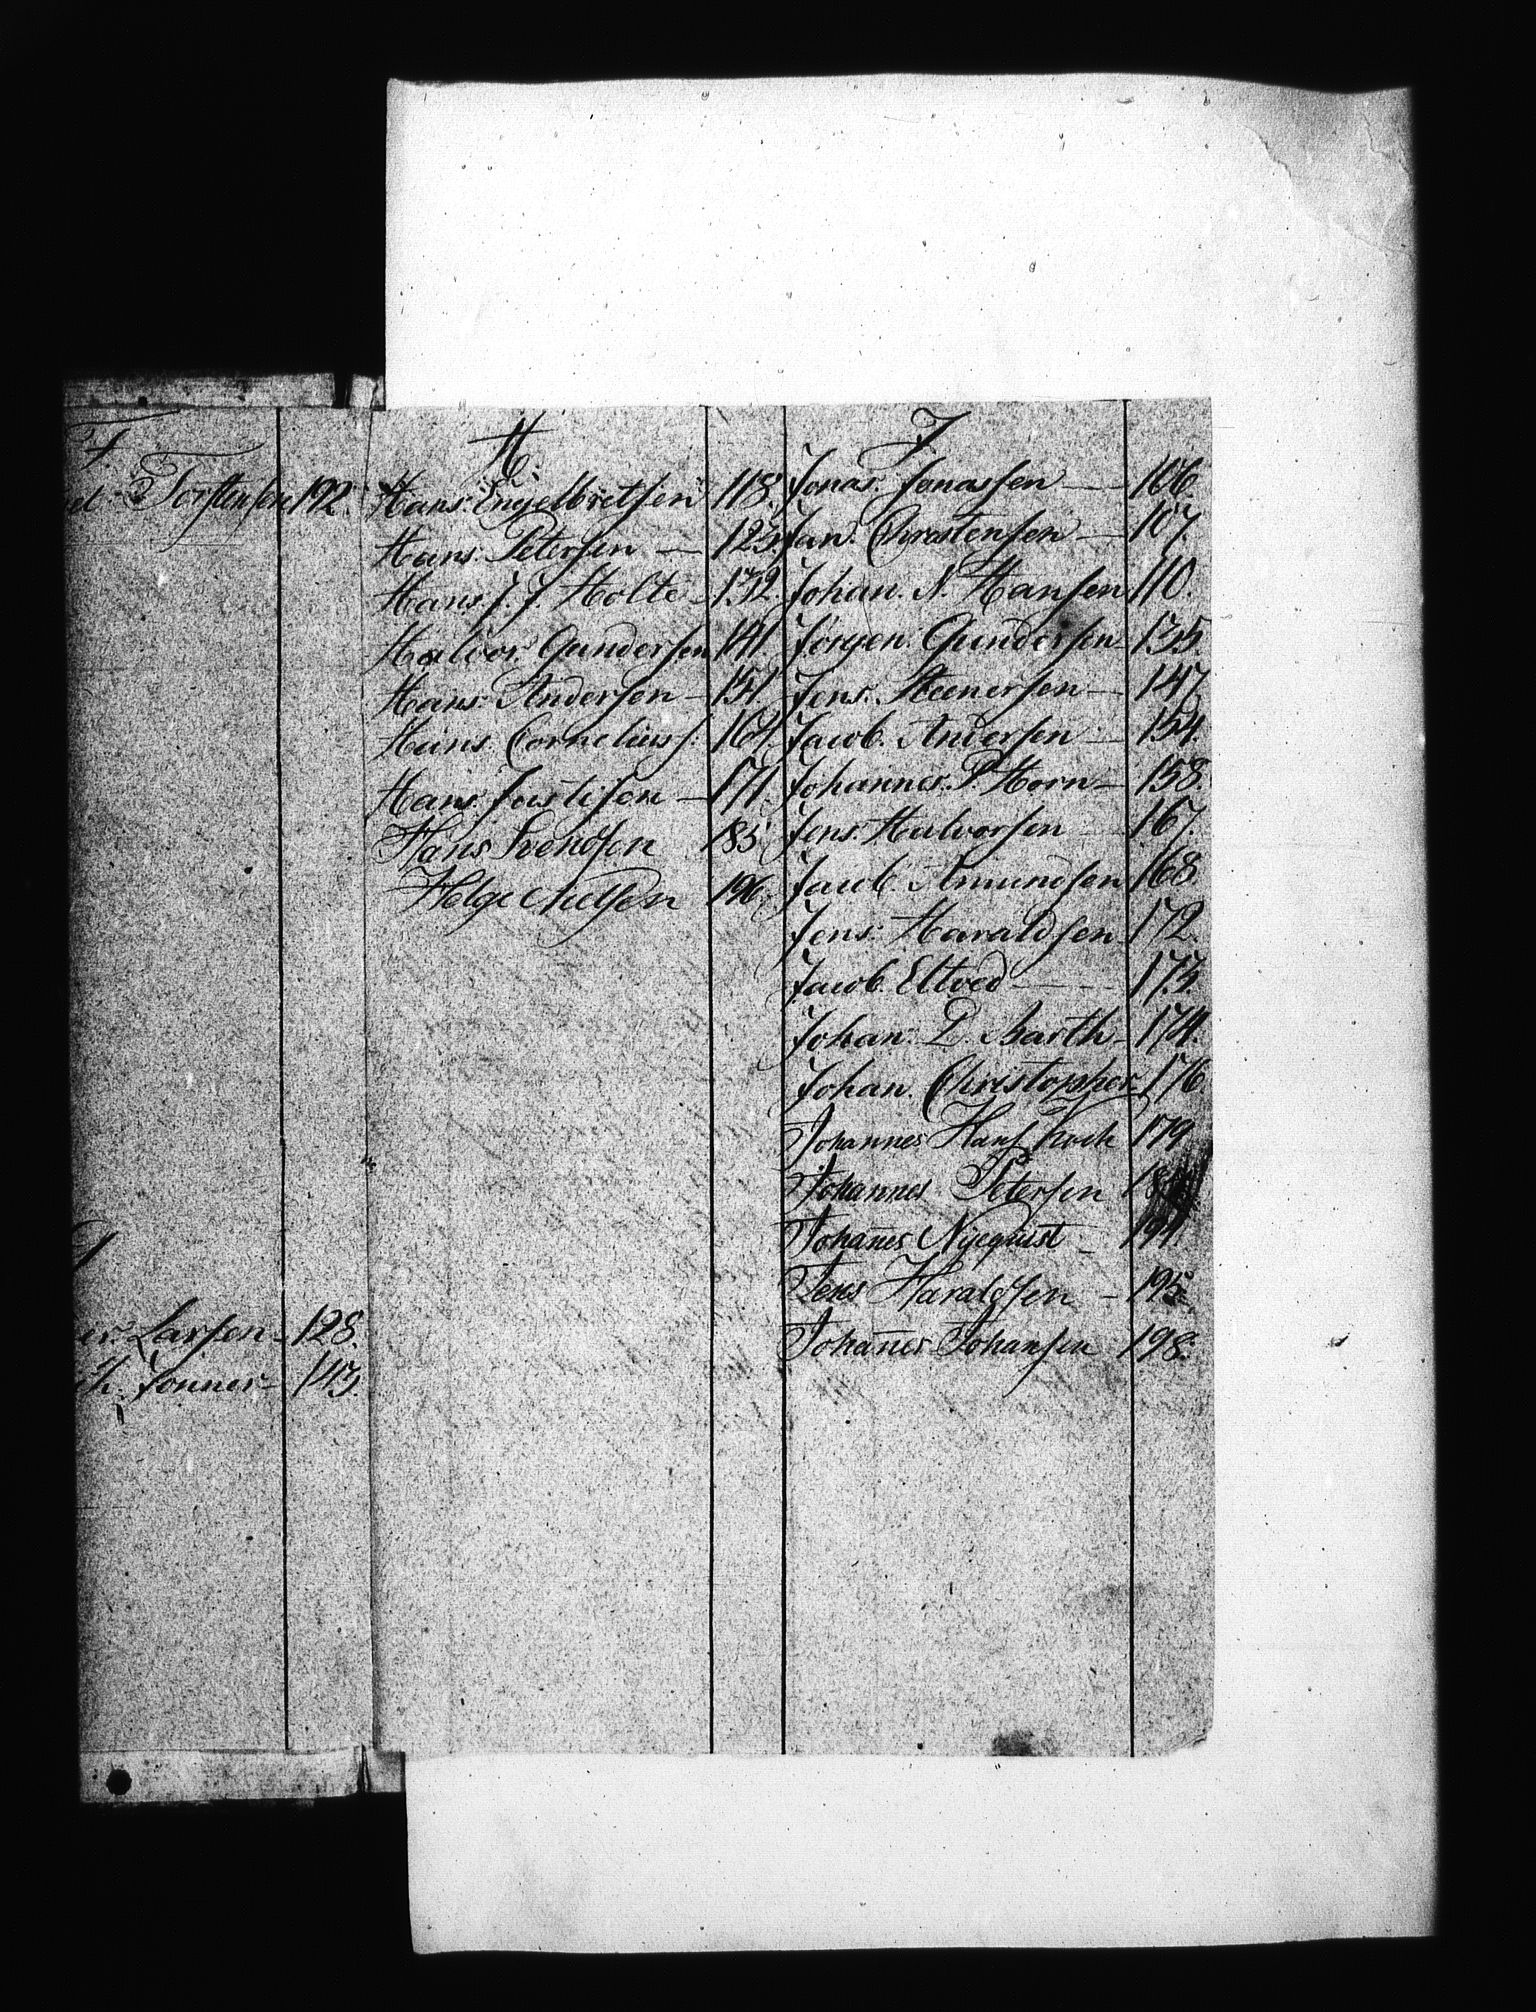 F.
Torstensen 192.
er Larsen - 128.
th. Fonner - 143.
H.
Hans Engelbretsen 118.
Hans Petersen — 123.
Hans J. J. Holte - 132.
Halvor Gundersen 141.
Hans Andersen - 151.
Hans Cornelius s. 164.
Hans Justisen — 171.
Hans Svendsen 185
Helge Nielsen 196.
J.
Jonas Jonassen — 106.
Jan Christensen — 107.
Johan N. Hansen 110.
Jørgen Gundersen - 135.
Jens Steenersen — 147.
Jacob Andersen — 154.
Johannes P. Horn — 158.
Jens Halvorsen — 167.
Jacob Amundsen 168.
Jens Haraldsen - 172.
Jacob Eltved — 173.
Johan L. Barth - 174.
Johan Christopher 176.
Johannes Hans Koch 179
Johannes Petersen
Johan̄es Nyequist - 191
Jens Haraldsen - 195.
Johan̄es Johansen 198.